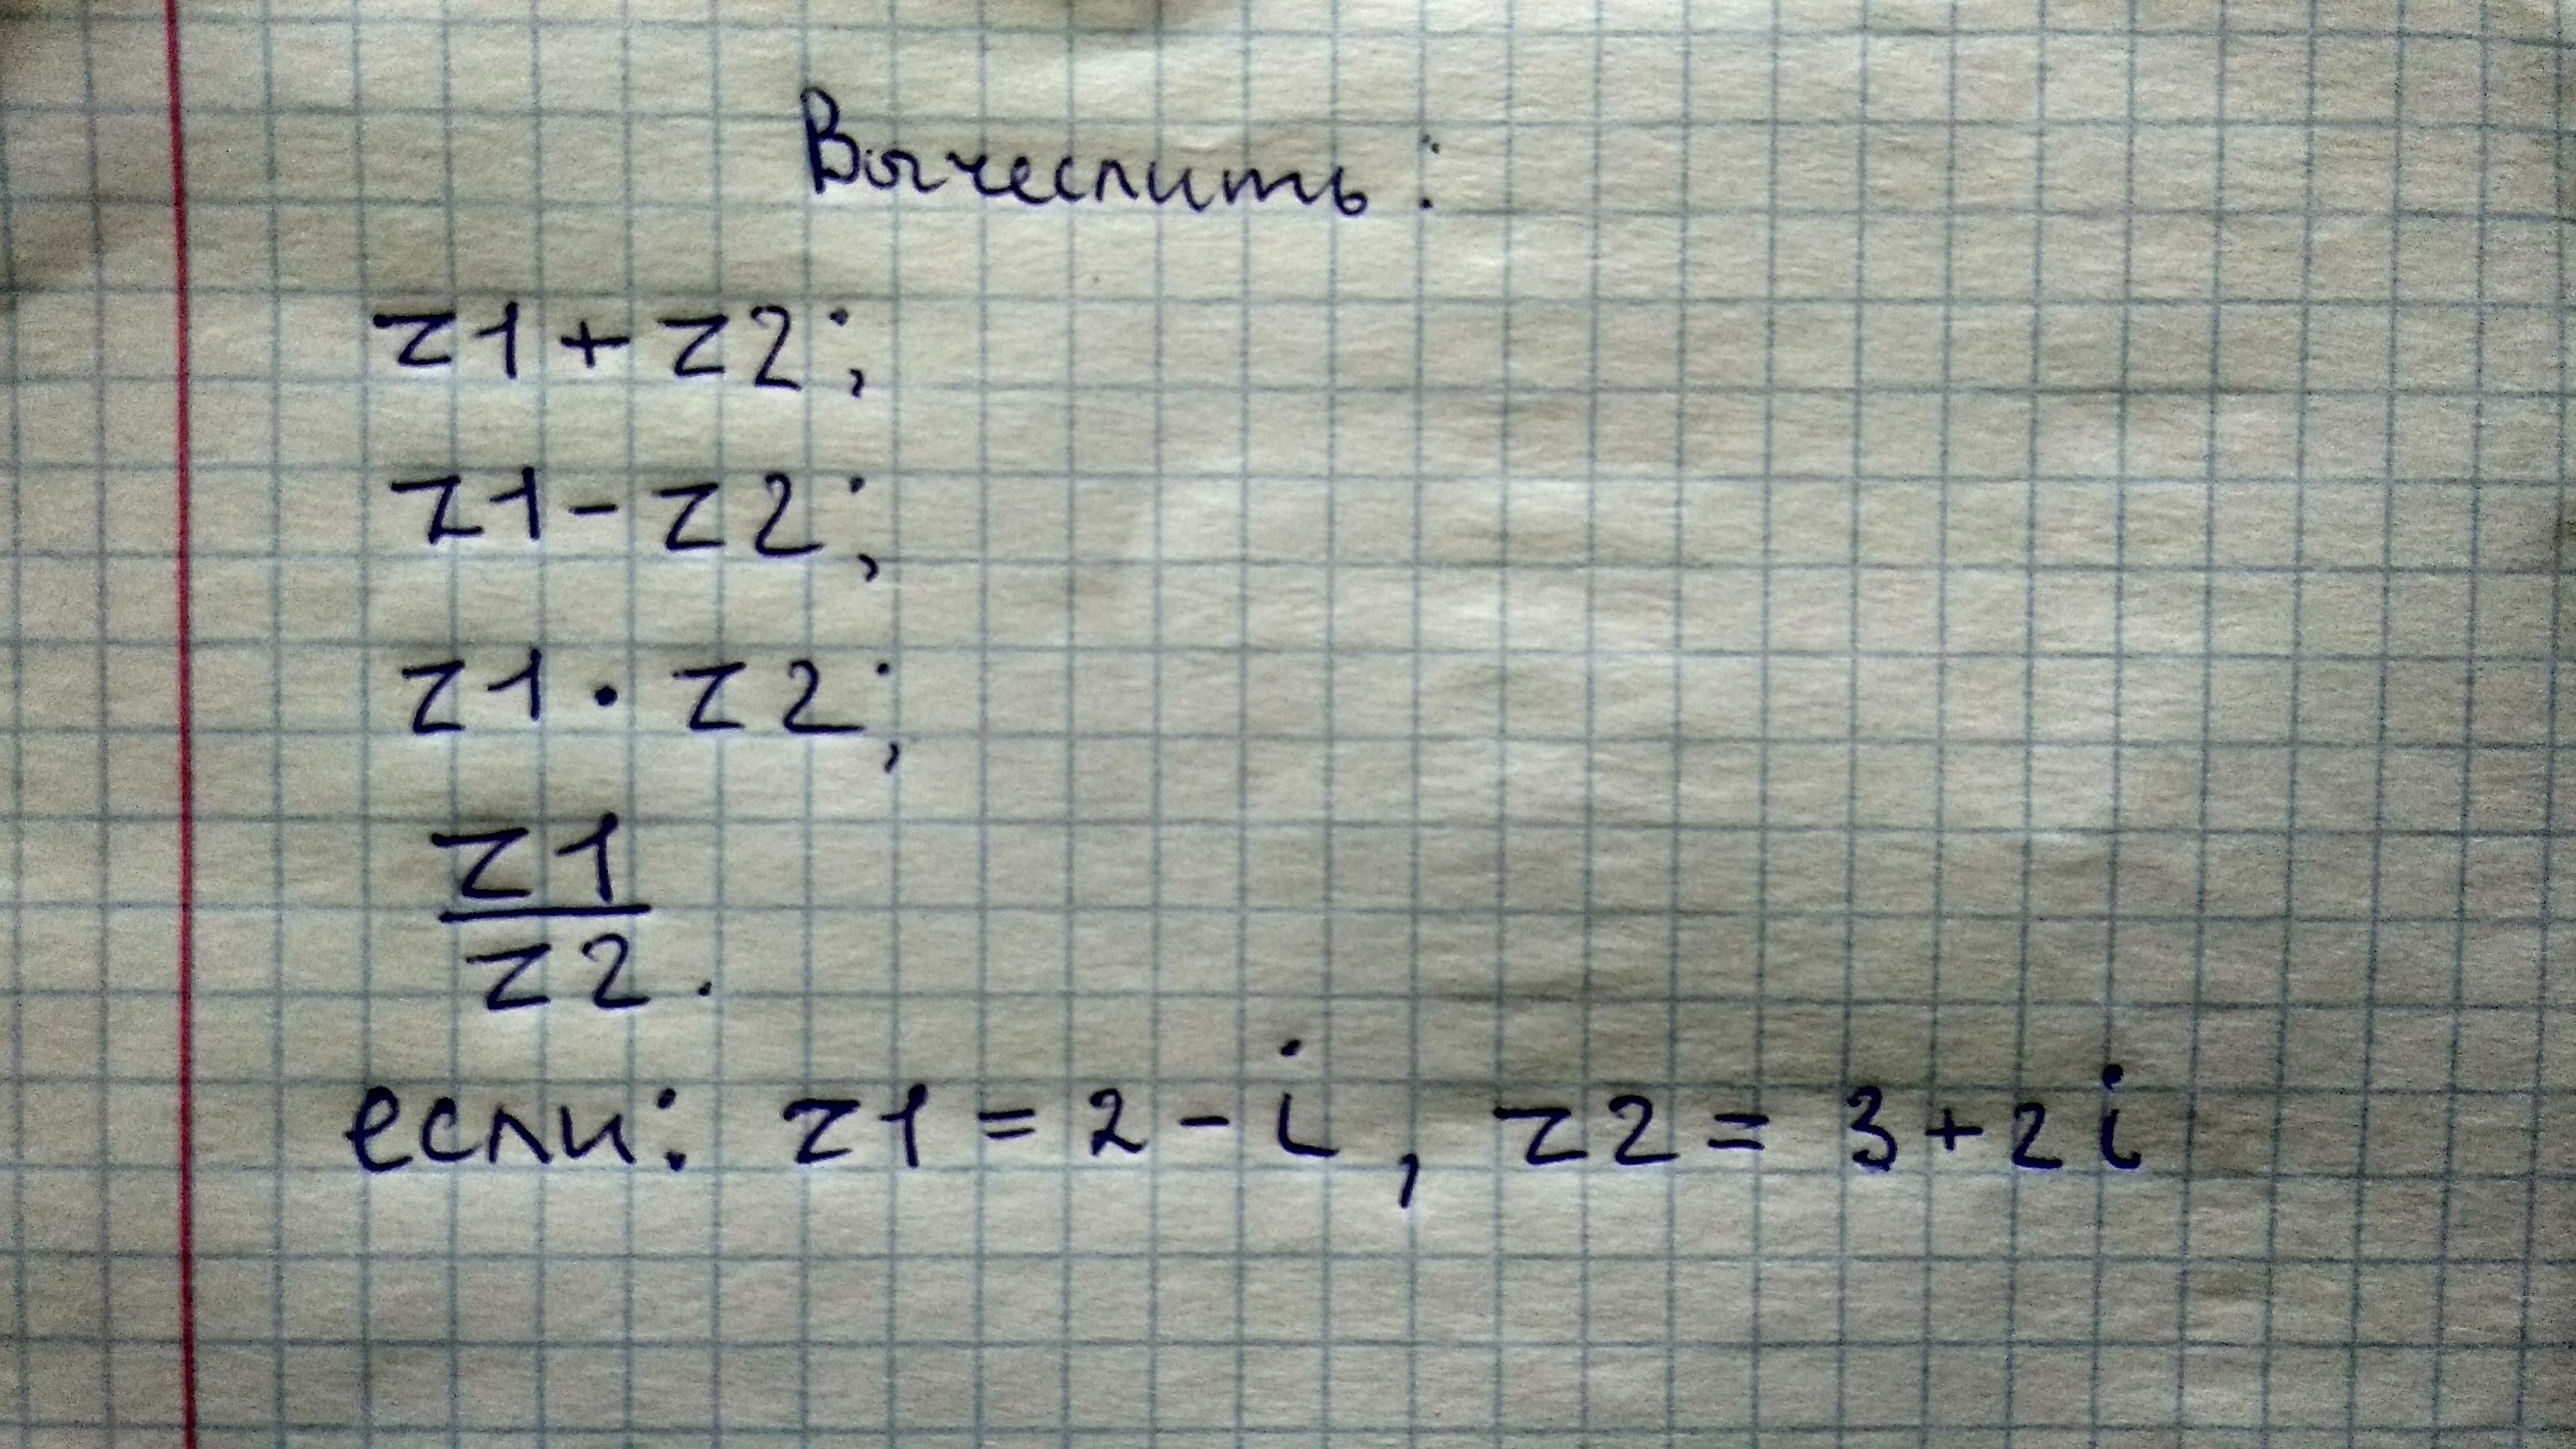 Вычеслить:
z1+z2;
z1-z2;
z1·z2;
z1
z2.
если: z1=2-i, z2=3+2i